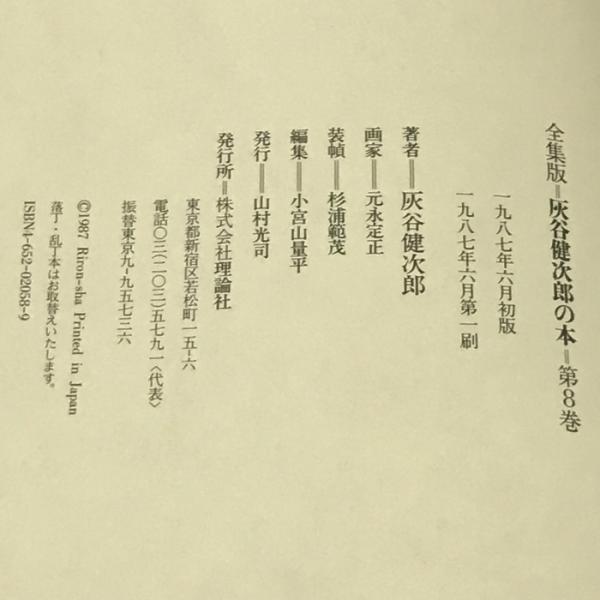 全集版=灰谷健次郎の本=第8巻
一九八七年六月初版
一九八七年六月第一刷
著者——灰谷健次郎
画家——元永定正
装幀——杉浦範茂
編集——小宮山量平
発行——山村光司
発行所=株式会社理論社
東京都新宿区若松町一五-六
電話〇三(二〇三)五七九一〈代表〉
振替東京九-九五七三六
©1987 Riron-sha Printed in Japan
落丁・乱丁本はお取替えいたします。
ISBN4-652-02058-9